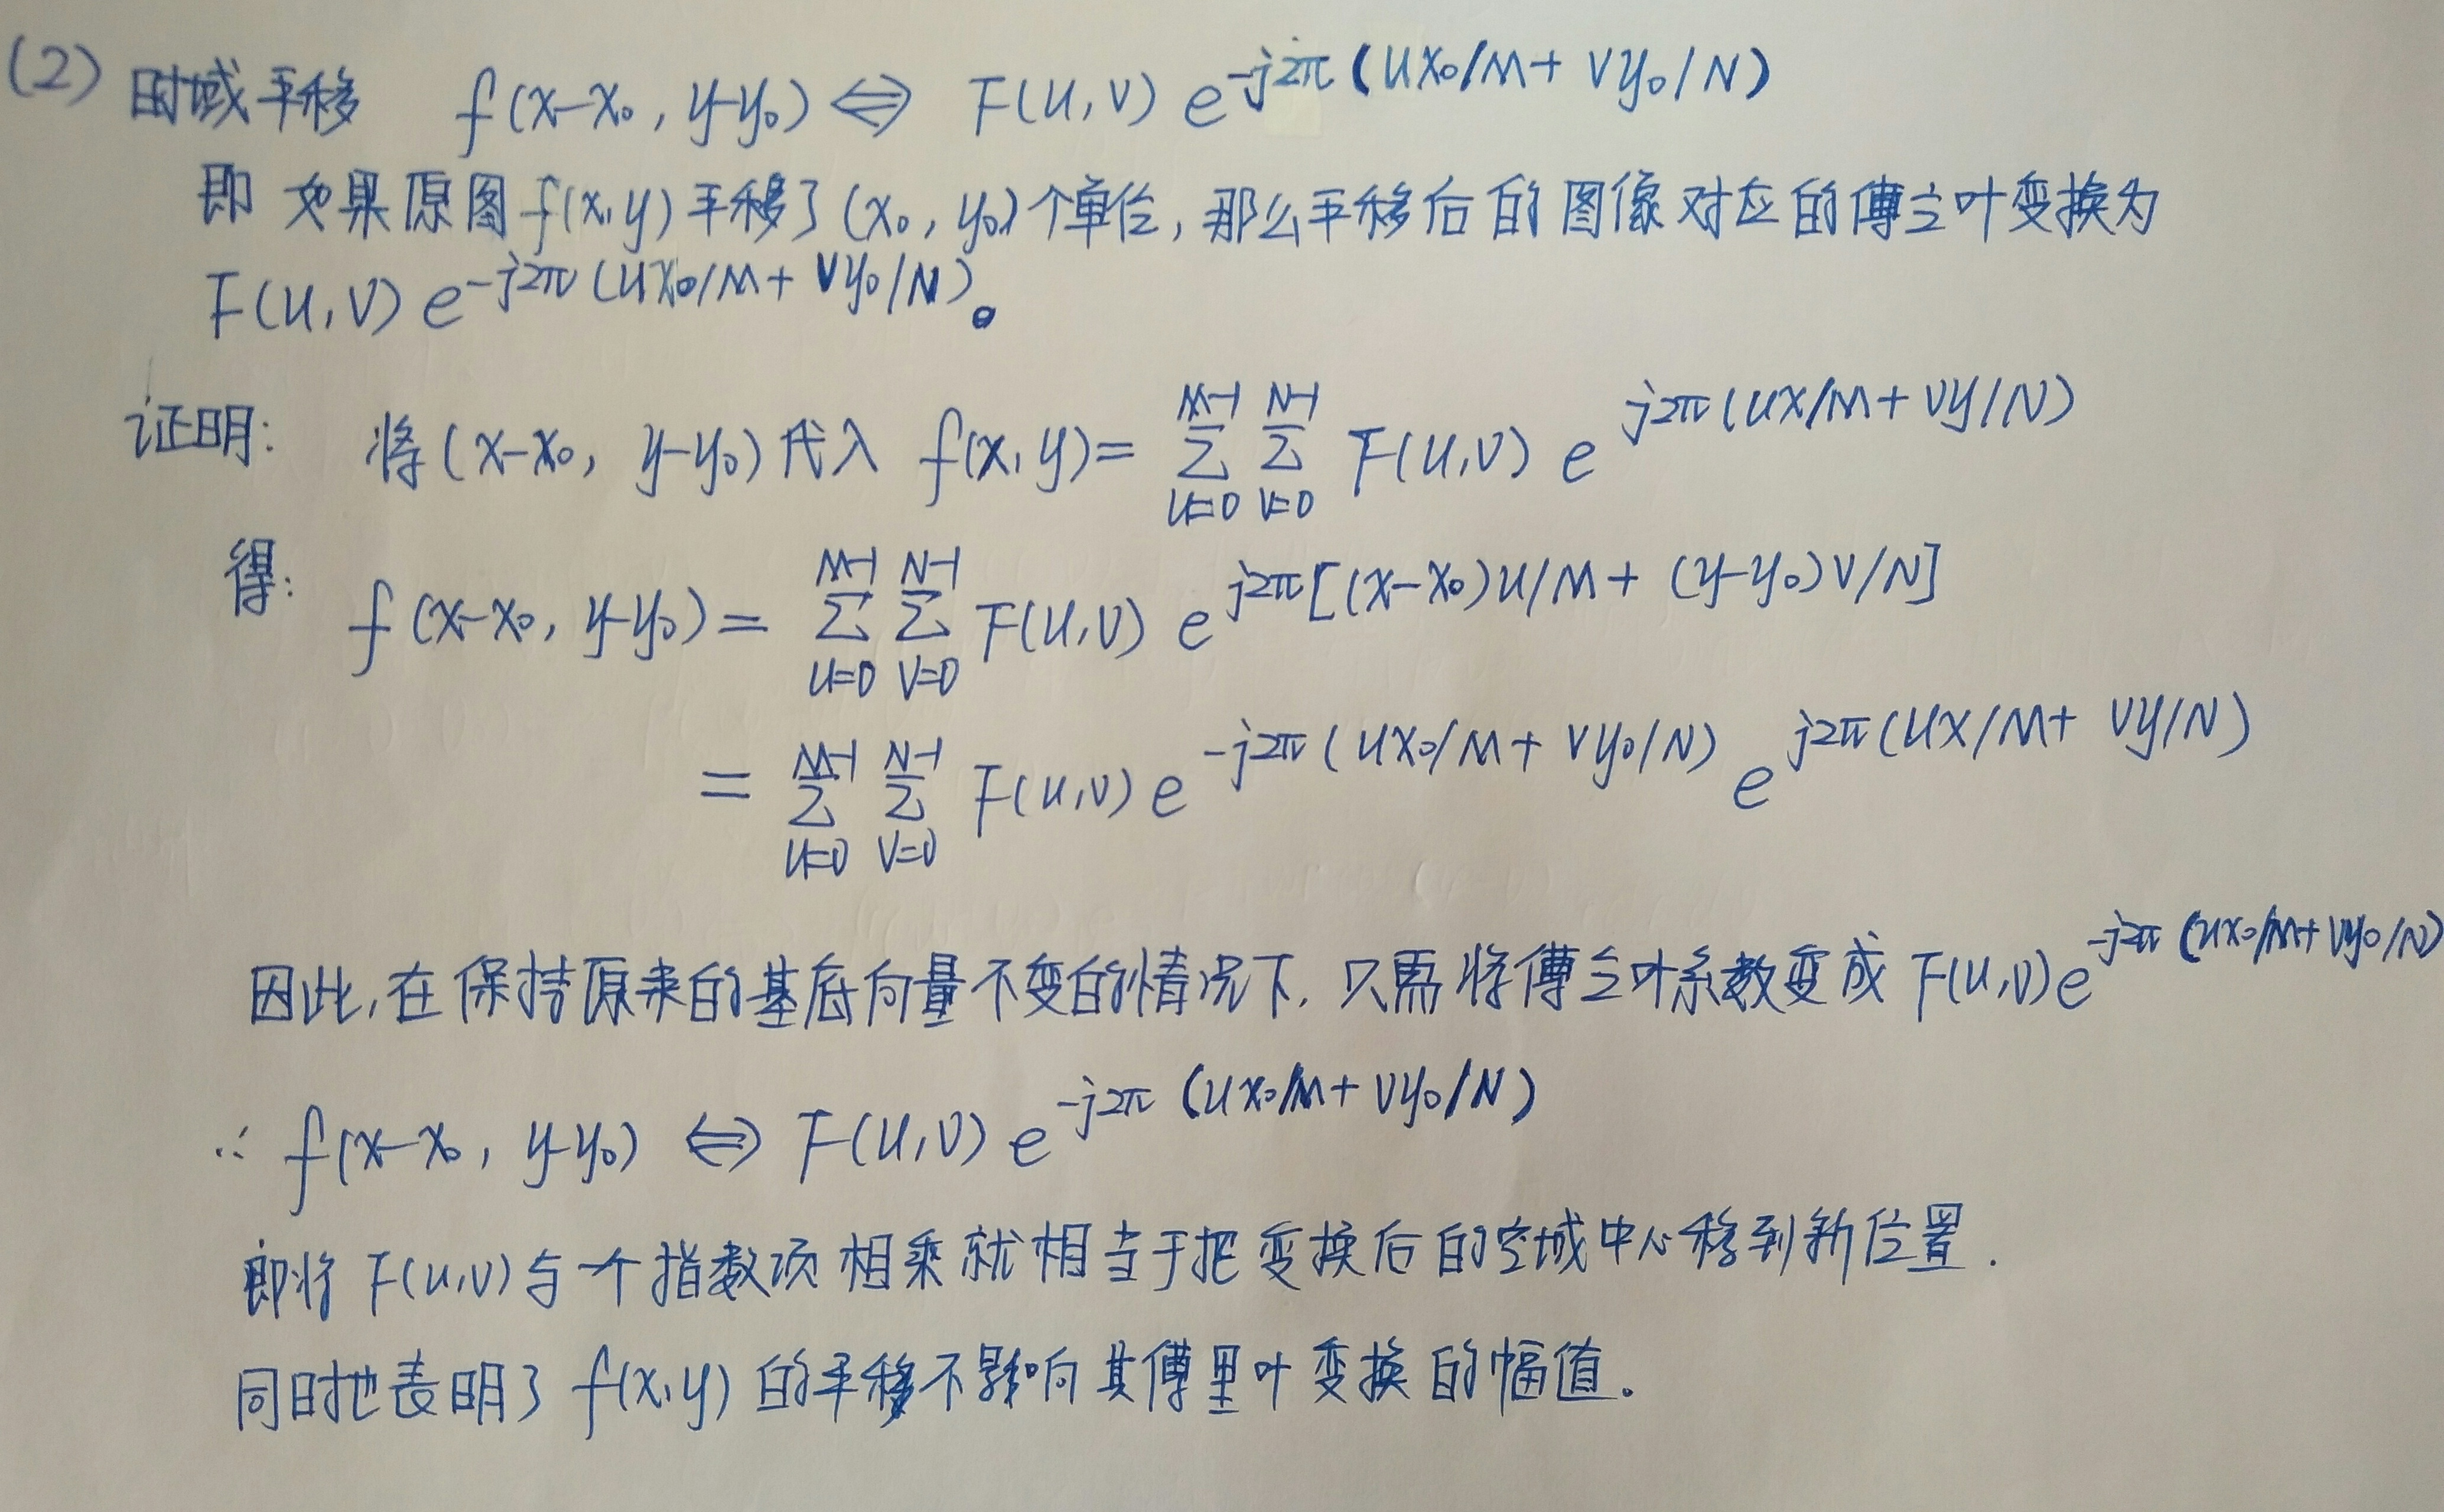 (2) 时域平移 f(x-x₀, y-y₀) ⇔ F(u,v) e^{-j2π(ux₀/M + vy₀/N)}
即 如果原图f(x,y)平移了(x₀, y₀)个单位, 那么平移后的图像对应的傅立叶变换为
F(u,v) e^{-j2π(ux₀/M + vy₀/N)}。
证明: 将(x-x₀, y-y₀)代入 f(x,y) = ∑_{u=0}^{M-1} ∑_{v=0}^{N-1} F(u,v) e^{j2π(ux/M + vy/N)}
得: f(x-x₀, y-y₀) = ∑_{u=0}^{M-1} ∑_{v=0}^{N-1} F(u,v) e^{j2π[(x-x₀)u/M + (y-y₀)v/N]}
= ∑_{u=0}^{M-1} ∑_{v=0}^{N-1} F(u,v) e^{-j2π(ux₀/M + vy₀/N)} e^{j2π(ux/M + vy/N)}
因此,在保持原来的基底向量不变的情况下, 只需将傅立叶系数变成 F(u,v)e^{-j2π(ux₀/M + vy₀/N)}
∴ f(x-x₀, y-y₀) ⇔ F(u,v) e^{-j2π(ux₀/M + vy₀/N)}
即将 F(u,v)与一个指数项相乘就相当于把变换后的空域中心移到新位置.
同时也表明了 f(x,y) 的平移不影响其傅里叶变换的幅值。